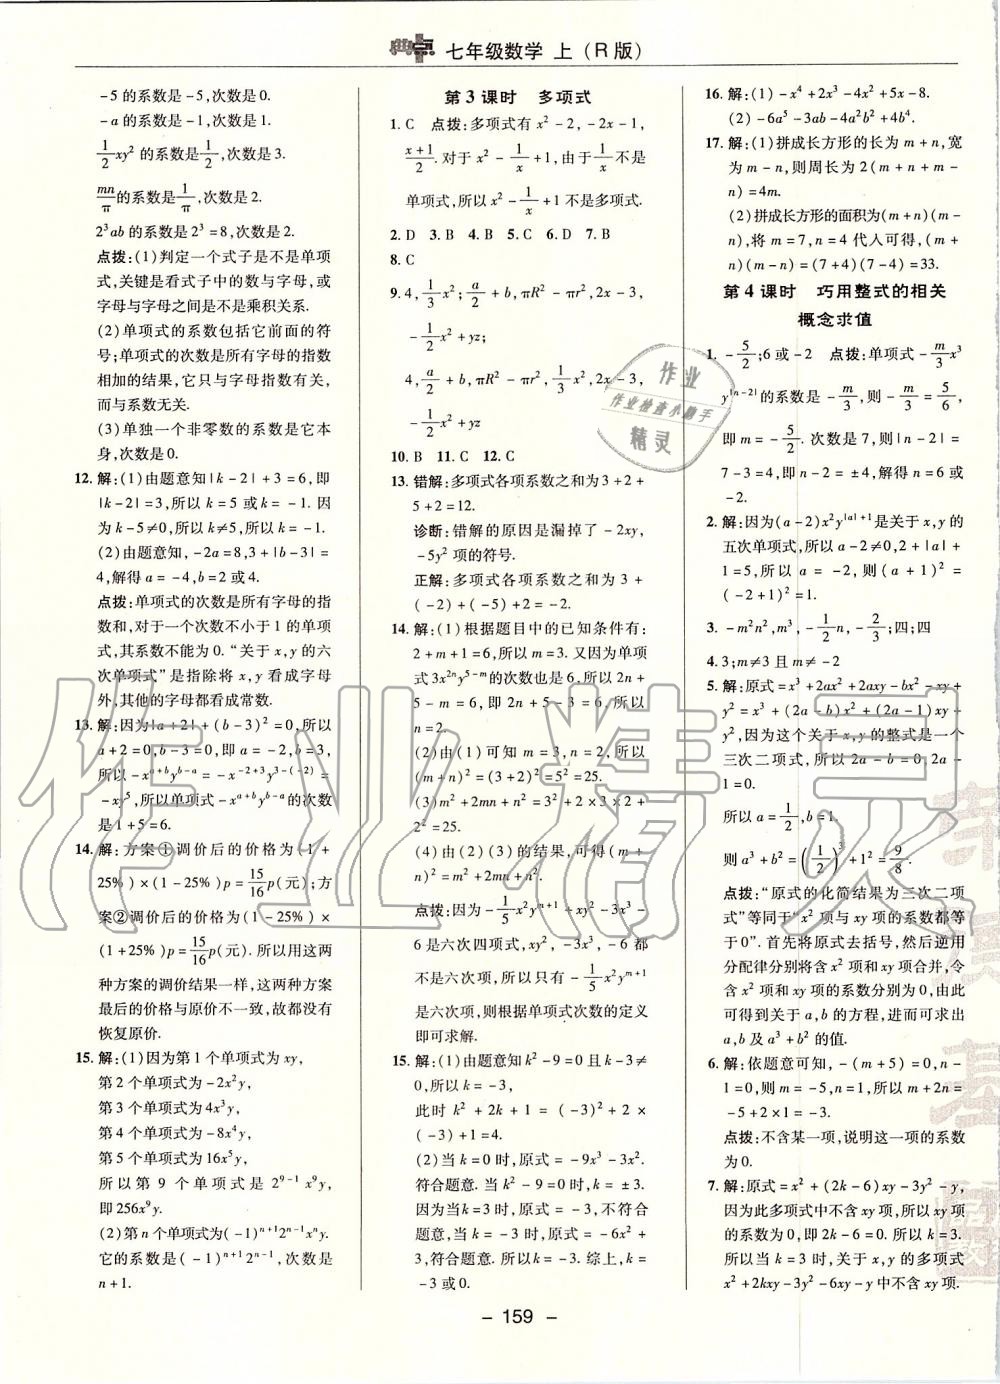 典中点 七年级数学 上（R版）
-5的系数是-5,次数是0.
-a的系数是-1,次数是1.
1/2 xy² 的系数是1/2,次数是3.
mn/π的系数是1/π,次数是2.
2³ab的系数是2³=8,次数是2.
点拨:(1)判定一个式子是不是单项
式,关键是看式子中的数与字母,或
字母与字母之间是不是乘积关系.
(2)单项式的系数包括它前面的符
号;单项式的次数是所有字母的指数
相加的结果,它只与字母指数有关,
而与系数无关.
(3)单独一个非零数的系数是它本
身,次数是0.
12. 解:(1)由题意知|k-2|+3=6,即
|k-2|=3,所以k=5或k=-1.因
为k-5≠0,所以k≠5,所以k=-1.
(2)由题意知,-2a=8,3+|b-3|=
4,解得a=-4,b=2或4.
点拨:单项式的次数是所有字母的指
数和,对于一个次数不小于1的单项
式,其系数不能为0.“关于x,y的六
次单项式”是指除将x,y看成字母
外,其他的字母都看成常数.
13. 解:因为|a+2|+(b-3)²=0,所以
a+2=0,b-3=0,即a=-2,b=3,
所以-x^(a+b)y^(b-a)=-x^(-2+3)y^(3-(-2))=
-xy⁵,所以单项式-x^(a+b)y^(b-a)的次数
是1+5=6.
14. 解:方案①调价后的价格为(1+
25%)×(1-25%)p=15/16 p(元);方
案②调价后的价格为(1-25%)
×(1+25%)p=15/16 p(元).所以用这两
种方案的调价结果一样,这两种方案
最后的价格与原价不一致,故都没有
恢复原价.
15. 解:(1)因为第1个单项式为xy,
第2个单项式为-2x²y,
第3个单项式为4x³y,
第4个单项式为-8x⁴y,
第5个单项式为16x⁵y,
所以第9个单项式是2^(9-1)x⁹y,
即256x⁹y.
(2)第n个单项式为(-1)^(n+1)2^(n-1)xⁿy.
它的系数是(-1)^(n+1)2^(n-1),次数是
n+1.
第3课时 多项式
1. C 点拨:多项式有x²-2,-2x-1,
(x+1)/2.对于x²-1/x+1,由于1/x不是
单项式,所以x²-1/x+1不是多项式.
2. D 3. B 4. B 5. C 6. D 7. B
8. C
9. 4,1/3 x²;a/2+b,πR²-πr²,2x-3,
-1/2 x²+yz;
4,a/2+b,πR²-πr²,1/3 x²,2x-3,
-1/2 x²+yz
10. B 11. C 12. C
13. 错解:多项式各项系数之和为3+2+
5+2=12.
诊断:错解的原因是漏掉了-2xy,
-5y²项的符号.
正解:多项式各项系数之和为3+
(-2)+(-5)+2=-2.
14. 解:(1)根据题目中的已知条件有:
2+m+1=6,所以m=3.又因为单项
式3x^(2n)y^(5-m)的次数也是6,所以2n+
5-m=6,即2n+5-3=6,所以
n=2.
(2)由(1)可知m=3,n=2,所以
(m+n)²=(3+2)²=5²=25.
(3)m²+2mn+n²=3²+2×3×2+
2²=25.
(4)由(2)(3)的结果,可得(m+
n)²=m²+2mn+n².
点拨:因为-1/5 x²y^(m+1)+xy²-3x³-
6是六次四项式,xy²,-3x³,-6都
不是六次项,所以只有-1/5 x²y^(m+1)
是六次项,则根据单项式次数的定义
即可求解.
15. 解:(1)由题意知k²-9=0且k-3≠
0,所以k=-3,
此时k²+2k+1=(-3)²+2×
(-3)+1=4.
(2)当k=0时,原式=-9x³-3x-2.
符合题意.当k²-9=0时,k=±3.
当k=3时,原式=-3,不符合
题意,当k=-3时,原式=-6x²-
3,符合题意.所以k=-3.综上,k=
-3或0.
16. 解:(1)-x⁴+2x³-4x²+5x-8.
(2)-6a⁵-3ab-4a²b²+4b⁴.
17. 解:(1)拼成长方形的长为m+n,宽
为m-n,则周长为2(m+n+m-
n)=4m.
(2)拼成长方形的面积为(m+n)(m-
n),将m=7,n=4代入可得,(m+
n)(m-n)=(7+4)(7-4)=33.
第4课时 巧用整式的相关
概念求值
1. -5/2;6或-2 点拨:单项式-m/3 x³
y^|n-2|的系数是-m/3,则-m/3=5/6,
即m=-5/2.次数是7,所以|n-2|=
7-3=4,即n-2=±4,解得n=6或
-2.
2. 解:因为(a-2)x²y^(|a|+1)是关于x,y的
五次单项式,所以a-2≠0,2+|a|+
1=5,所以a=-2,所以(a+1)²=
(-2+1)²=1.
3. -m²n²,m³,-1/2 n,-2/3;四;四
4. 3;m≠3且m≠-2
5. 解:原式=x³+2ax²+2axy-bx²-xy+
y²=x³+(2a-b)x²+(2a-1)xy+
y²,因为这个关于x,y的整式是一个
三次二项式,所以2a-b=0,2a-
1=0,
所以a=1/2,b=1,
则a³+b²=(1/2)³+1²=9/8.
点拨:“原式的化简结果为三次二项
式”等同于“x²项与xy项的系数都等
于0”.首先将原式去括号,然后逆用
分配律分别将含x²项和xy项合并,令
含x²项和xy项的系数分别为0,由此
可得到关于a,b的方程,进而可求出
a,b及a³+b²的值.
6. 解:依题意可知,-(m+5)=0,n-
1=0,则m=-5,n=1,所以m+2n=
-5+2×1=-3.
点拨:不含某一项,说明这一项的系数
为0.
7. 解:原式=x²+(2k-6)xy-3y²-y,
因为此多项式中不含xy项,所以xy项
的系数为0,即2k-6=0.所以k=3.
所以当k=3时,关于x,y的多项式
x²+2kxy-3y²-6xy-y中不含xy项.
- 159 -
作业
作业检查小助手
精灵
作业精灵